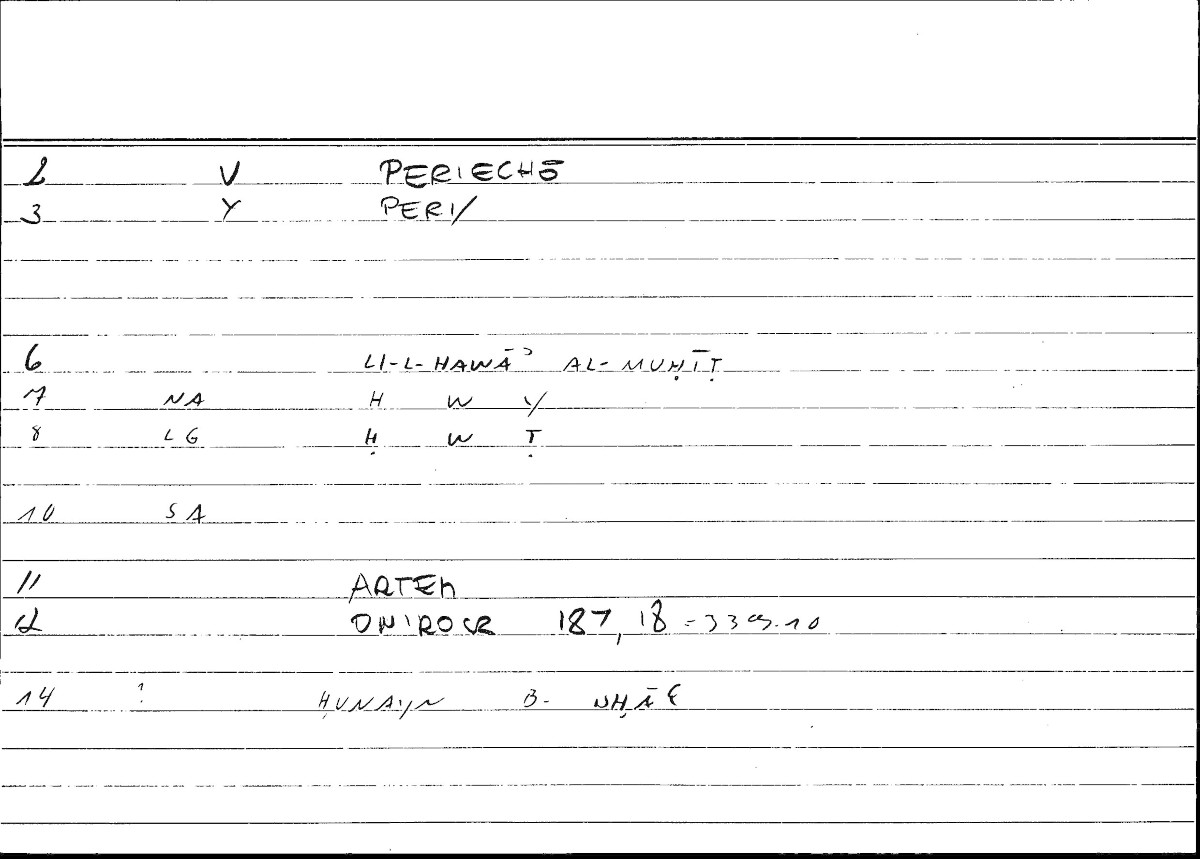 2 V PERIECHŌ
3 Y PERI/
6 LI-L-HAWĀʾ AL-MUḤĪṬ
7 NA H W Y
8 LG Ḥ W Ṭ
10 SA
11 ARTEM
12 ONIROCR 187, 18 = 339.10
14 ? ḤUNAYN B-